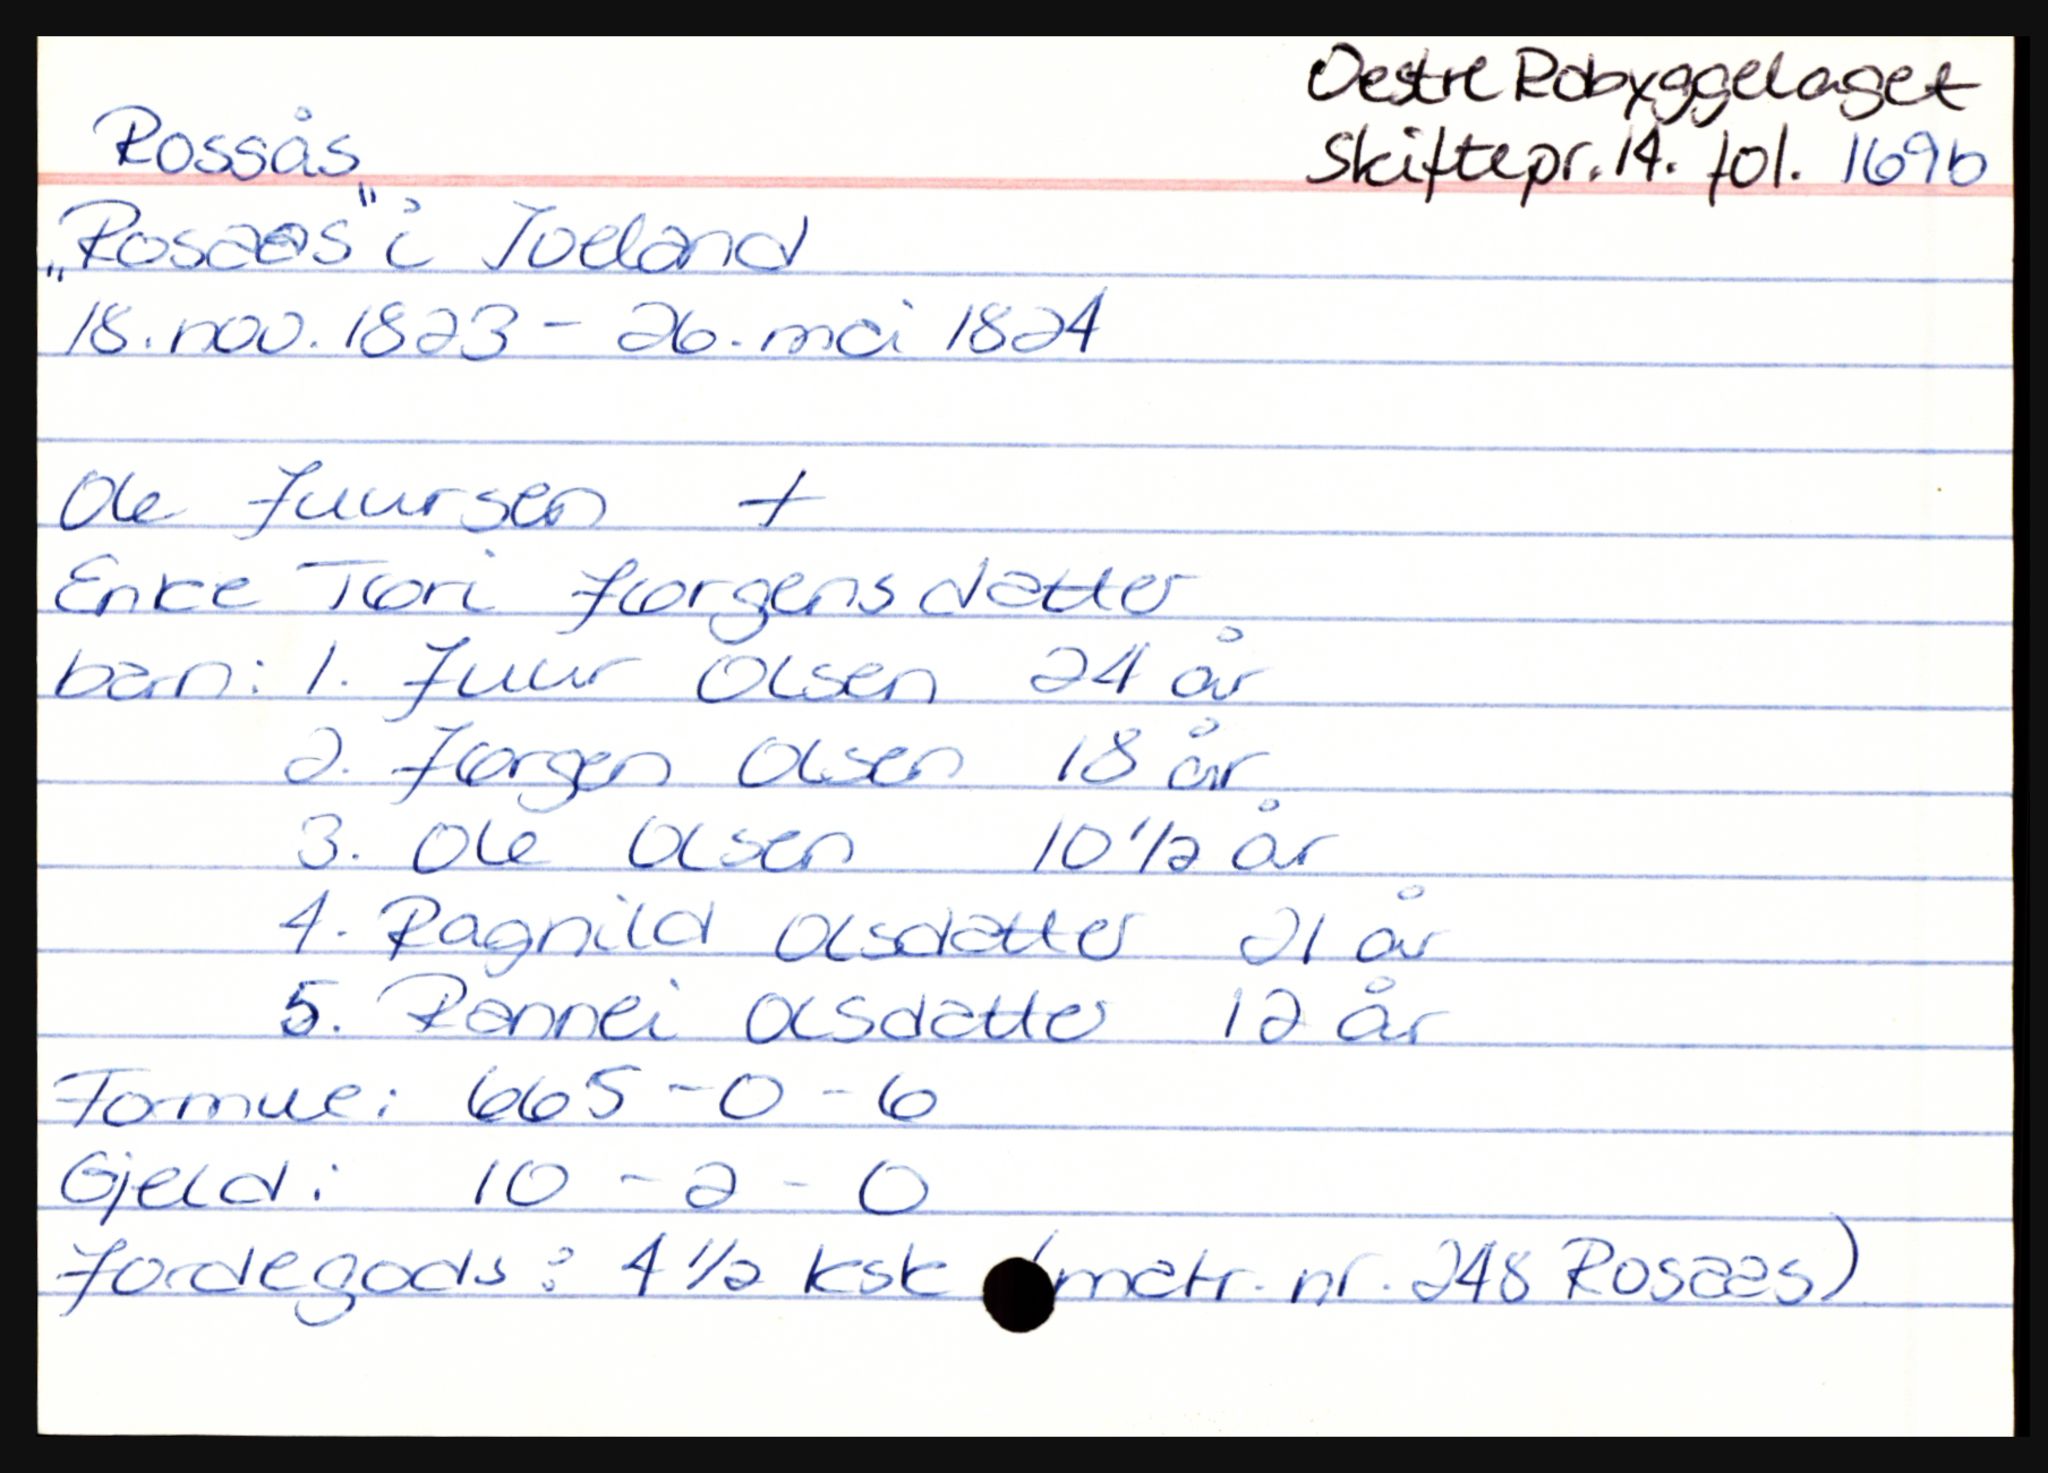 Oestre Robyggelaget
Rossås
Skiftepr. 14. fol. 169b
"Rosaas" i Iveland
18. nov. 1823 - 26. mai 1824
Ole Juursen +
Enke Tori Jorgensdatter
barn: 1. Juur Olsen 24 år
2. Jorgen Olsen 18 år
3. Ole Olsen 10 1/2 år
4. Ragnild Olsdatter 21 år
5. Rannei Olsdatter 12 år
Formue: 665 - 0 - 6
Gjeld: 10 - 2 - 0
Jordegods: 4 1/2 ksk (matr. nr. 248 Rosaas)